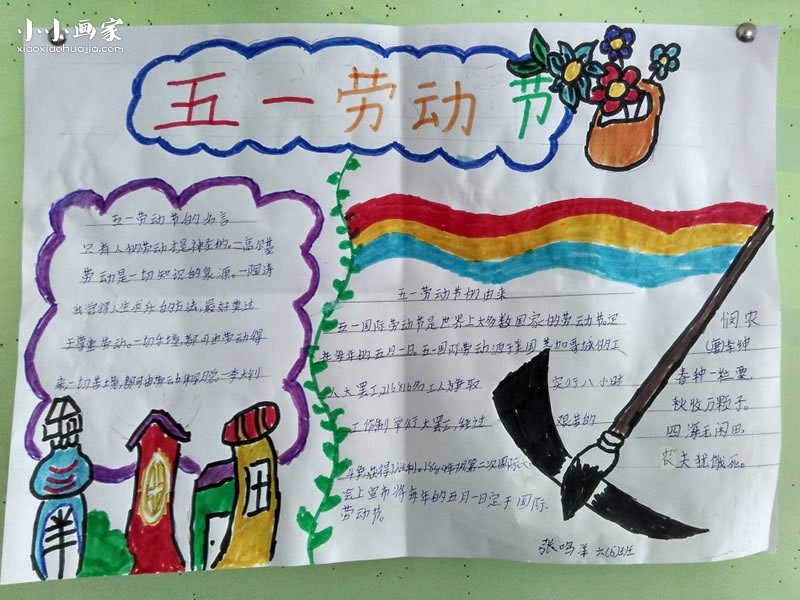 小小画家
xiaoxiaohuajia.com
五一劳动节
五一劳动节的名言
只有人的劳动才是神圣的。—高尔基
劳动是一切知识的泉源。—陶铸
我觉得人生求乐的方法,最好莫过
于尊重劳动。一切乐境,都可由劳动得
来,一切苦境,都可由劳动解脱。—李大钊
五一劳动节的由来
五一国际劳动节是世界上大多数国家的劳动节。定
在每年的五月一日。五一国际劳动源于美国芝加哥城的工
人大罢工,216816名工人为争取 实行八小时
工作制举行大罢工,经过 艰苦的
斗争,获得了胜利。1889年的第二次国际大
会上宣布将每年的五月一日定于国际
劳动节。
悯农
(唐)李绅
春种一粒粟,
秋收万颗子。
四海无闲田,
农夫犹饿死。
张鸣洋 六(5)班